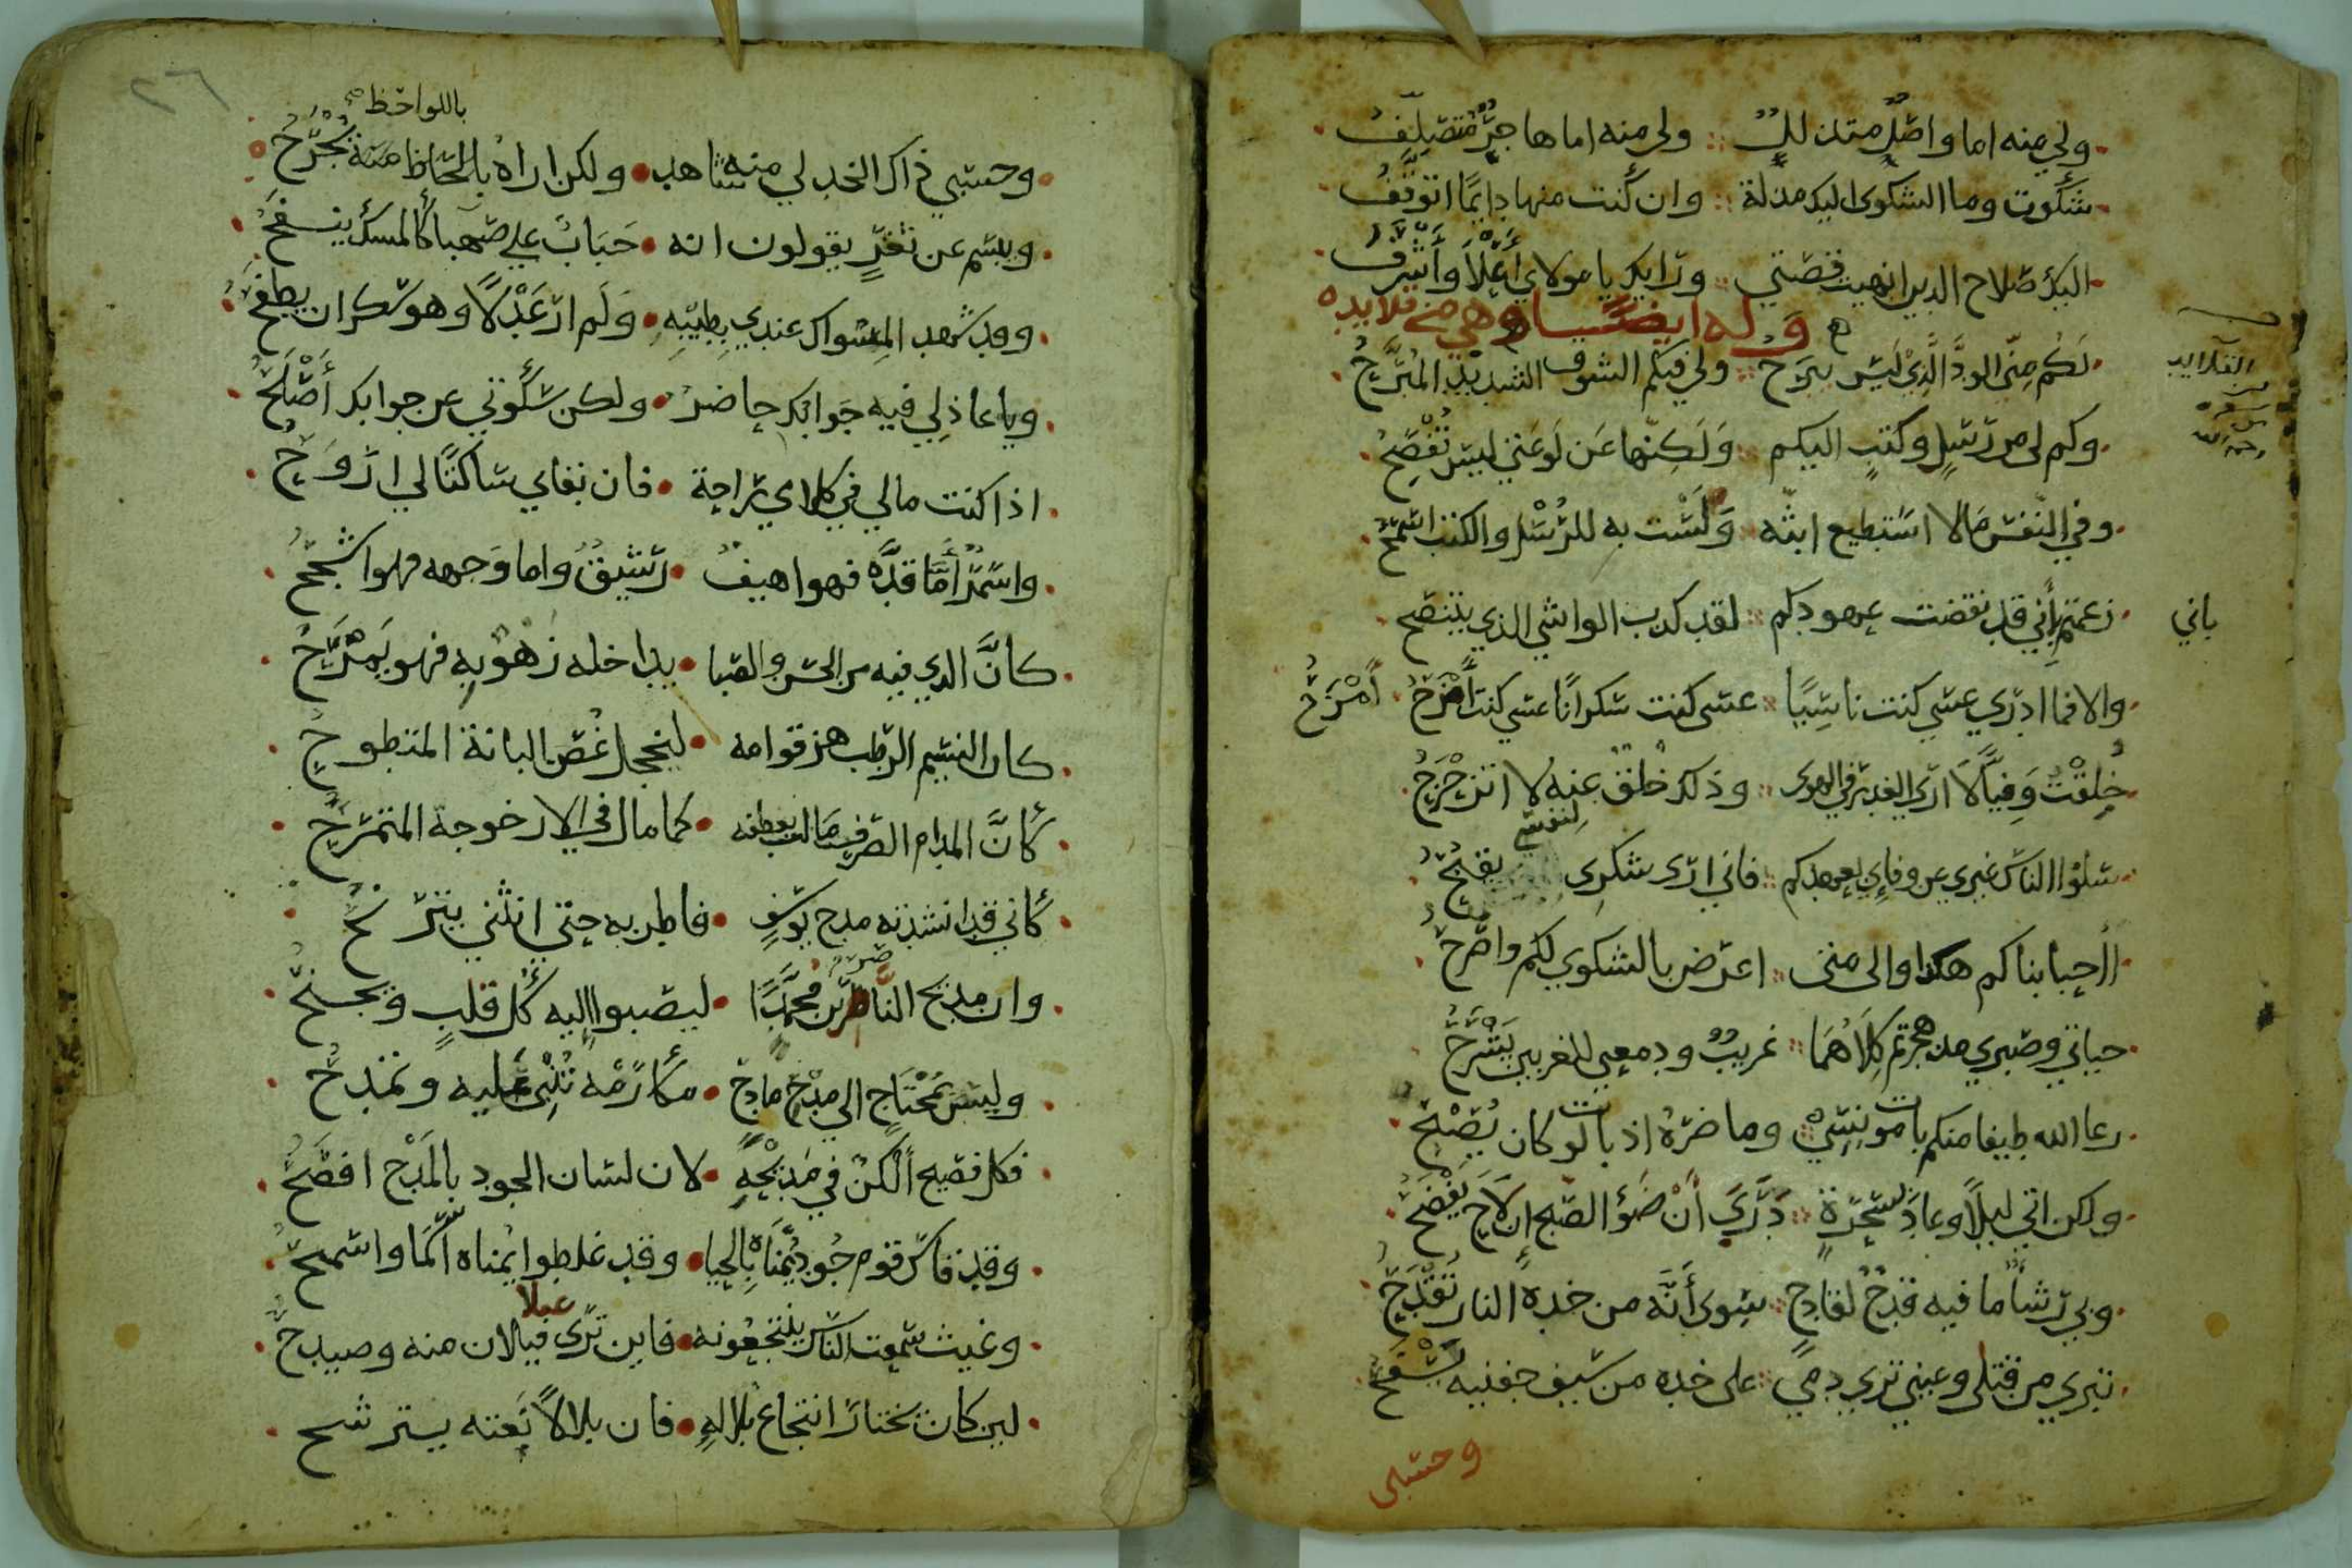 ولي منه اما واصل متدلل ولي منه اما هاجر متصلف
شكوت وما الشكوى اليك مذلة وان كنت منها دايمًا اتوقف
اليك صلاح الدين انهيت قصتي ورايك يا مولاي أعلا وأشرف
وله ايضا وهي من قلايده
لَكُم مِنّى الودَّ الَّذِيْ لَيْسَ يبرَح ولي فيكم الشوق الشديد المُبَرِّحُ
القلايد
من
رحمه الله
وكم لى من رسلٍ وكتبٍ اليكم وَلَكِنّها عَن لَوعَتي ليسَ تُفْصِحُ
وفي النّفس مَا لا استطيع ابثّه وَلَسْت به للرُسْل والكتب اسمَحُ
زعمتم بأني قد نقضت عهودكم لقد كدب الواشي الذي يتنصح
باني
والا فما ادري عسَي كنت ناسِيًا عسى كنت سكرانًا عسي كنت أمزح أمْزَحُ
خُلِقْتُ وَفِيًّا لَا ارَى الغدر في الهوى وذلك خلق عنه لا اتزحْزَحُ
سَلوا الناس غيري عن وفاءي بعهدكم فاني ارى شكرِى لنفسي يقبُحُ
أأحبابنا كم هكدا والى متى اعرّض بالشكوي لكم واصرّح
حياتي وصبري مد هجرتم كِلاهُمَا غريبٌ ودمعي للغريبين يَشْرَحُ
رعا الله طيفا منكم بات مونسِيْ وما ضرّهُ اذ بات لو كان يُصْبِحُ
ولكن اتي ليلًا وعادَ بسَحرَةٍ دَرَي أنْ ضَوْ الصّبح ان لاح يَفْضَحُ
وبي رشأً ما فيه قدحٌ لقادحٍ سِوى أنّه من خدهِ النار تُقْدَحُ
تبري من قتلى وعيني تري دمي على خده من سيف جفنيه يُسْفَحُ
وحسبي
٢٦
باللواحظ صح
وحسْبي ذاك الخد لي منه شاهد ولكن اراهُ بالحاظ منه يُجْرَحُ
ويبسم عن ثغرٍ يقولون انه حَبَابٌ علي صَهبا كالمسك ينفَحُ
وقد شهد المِسْواك عندي بِطِيْبِهِ وَلَم ار عَدْلًا وهو سكران يطفَحُ
ويا عاذِلِي فيه جَوابك حاضرٌ ولكن سكُوتي عن جوابك أصْلَحُ
اذا كنت مالي في كلامي راحة فان بقاي ساكتًا لي ارْوَحُ
واسْمَر أمَّا قدّه فهو اهيف رشيقٌ واما وَجهه فهو اشبحُ
كانَّ الدي فيه من الحسن والضيا يداخله زهو به فهو يَمْرَحُ
كان النسيم الرطب هز قوامه ليخجل غُصن البانة المتطوحُ
كأنَّ المدام الصرف مَالت بعطفه كما مال في الارجوحة المترجحُ
كأني قد انشدته مدح يوسُفٍ فاطربه حتي انثني يترنحُ
وان مديح الناصر بن محمّدًا ليصبوا اليه كُل قلبٍ ويجنحُ
وليس بمُحْتاج الى مدْح مادح مكارمْه تُثْنِى عليه وتمدحُ
فكل فصيح ألكنٌ في مَديْحِهِ لان لسان الجود بالمَدْح افصَحُ
وقد قاس قوم جُود يُمْناهُ بالحيا وقد غلطوا يُمناه اكمَا واسمحُ
وغيث سمعت الناس ينتجعُونه فاين تَرى غيلان منه وصيدحُ
غيلا
لين كان يختار انتجاع بلالهِ فان بلالًا بَعته يسترشح